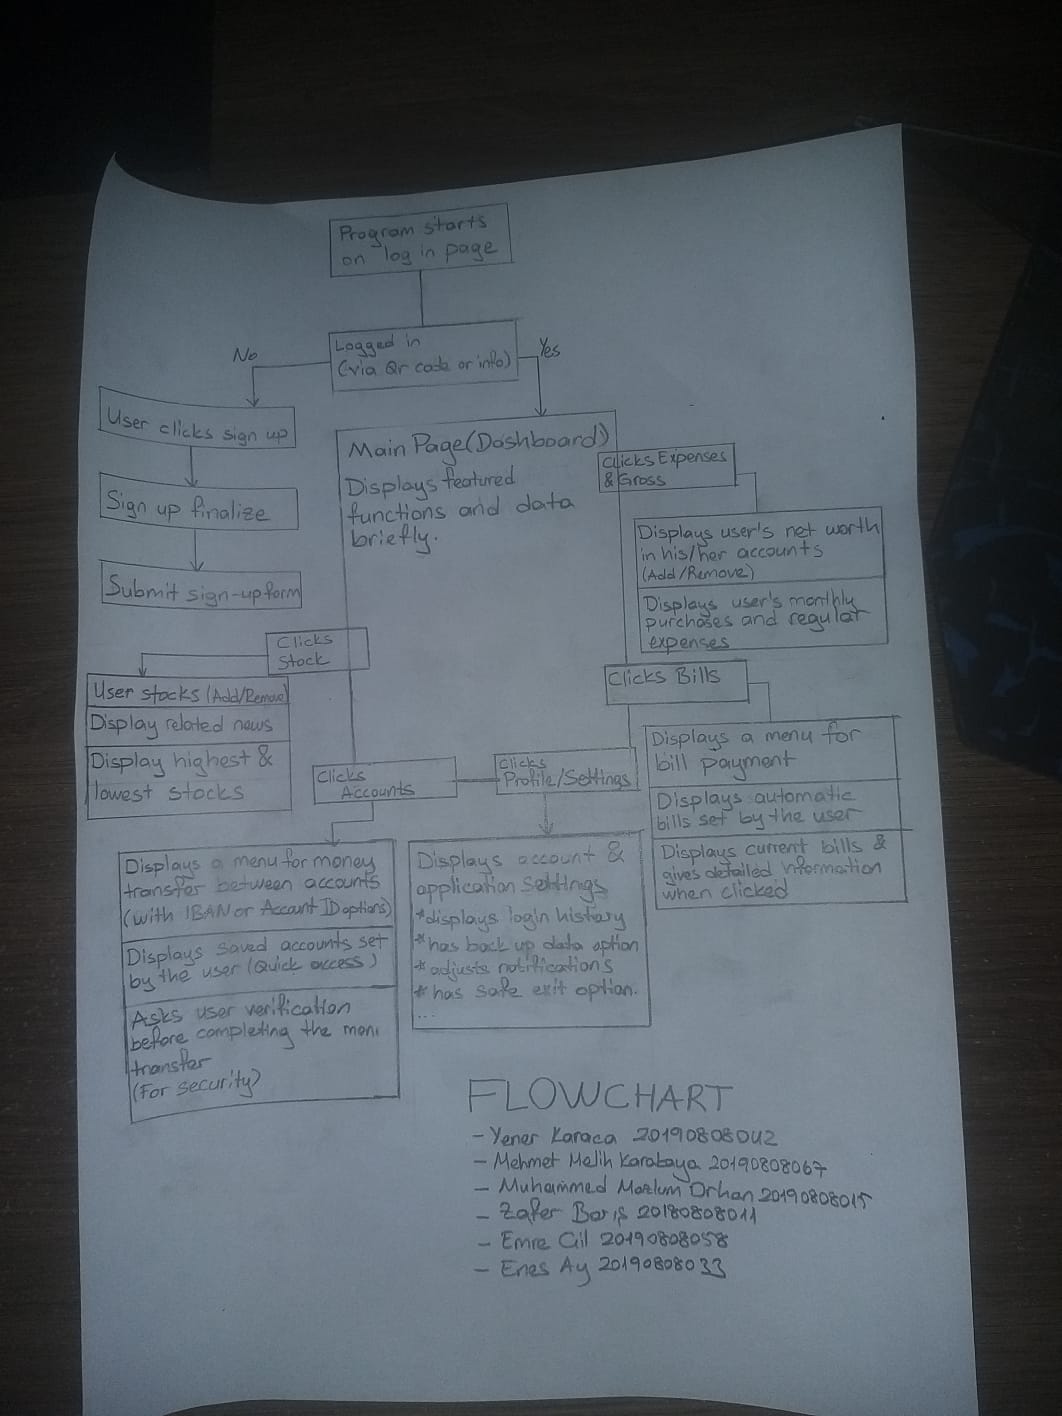 Program starts
on log in page
Logged in
(via Qr code or info)
No
Yes
User clicks sign up
Sign up finalize
Submit sign-up form
Main Page(Dashboard)
Displays featured
functions and data
briefly.
Clicks Expenses
& Gross
Displays user's net worth
in his/her accounts
(Add/Remove)
Displays user's monthly
purchases and regular
expenses
Clicks
Stock
User stocks (Add/Remove)
Display related news
Display highest &
lowest stocks
Clicks Bills
Displays a menu for
bill payment
Displays automatic
bills set by the user
Displays current bills &
gives detailed information
when clicked
Clicks
Accounts
Clicks
Profile/Settings
Displays a menu for money
transfer between accounts
(with IBAN or Account ID options)
Displays saved accounts set
by the user (Quick access)
Asks user verification
before completing the
transfer
(For security)
Displays account &
application settings
*displays login history
*has back up data option
*adjusts notifications
*has safe exit option.
...
FLOWCHART
- Yener Karaca 20190808042
- Mehmet Melih Karabaya 20190808067
- Muhammed Mazlum Orhan 20190808015
- Zafer Barış 20180808011
- Emre Gil 20190808058
- Enes Ay 20190808033